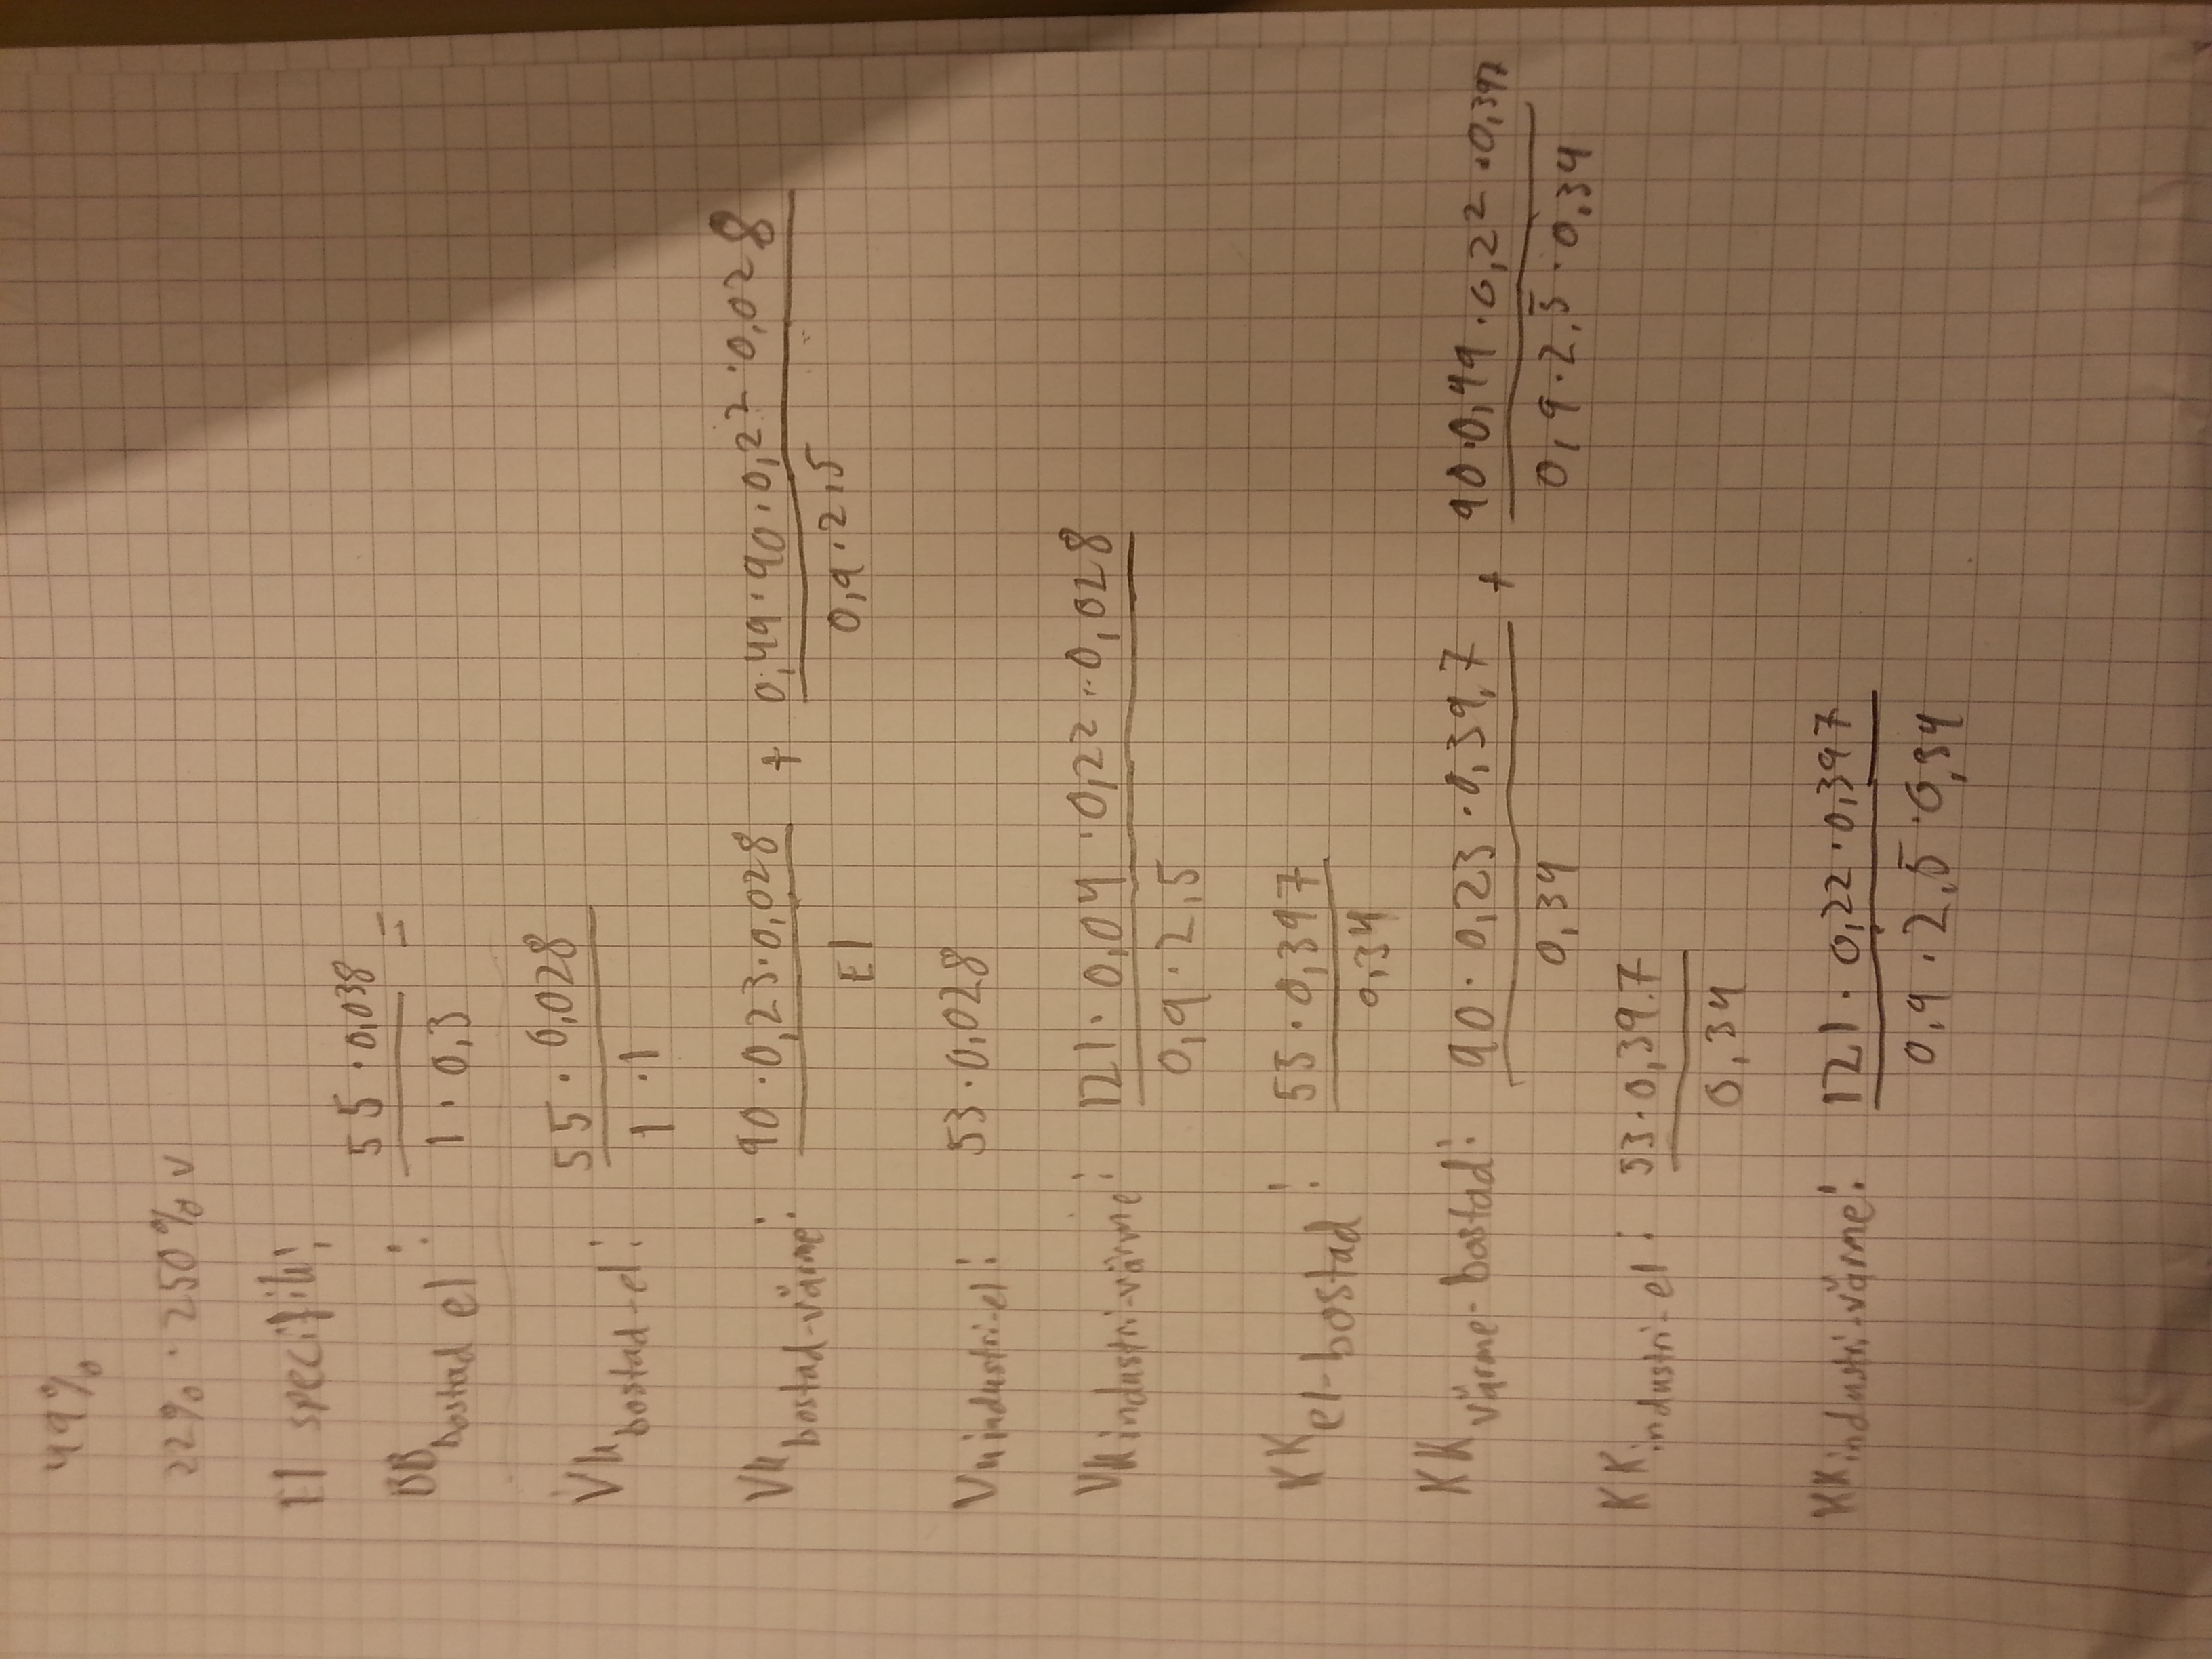 49%
22% · 250% v
El specifik:
BB bostad el : 55 · 0,038 / 1 · 0,3 =
Vk bostad-el : 55 · 0,028 / 1 · 1
Vk bostad-värme : 90 · 0,23 · 0,028 / El + 0,49 · 90 · 0,22 · 0,028 / 0,9 · 2,5
Vk industri-el : 53 · 0,028
Vk industri-värme : 121 · 0,04 · 0,22 · 0,028 / 0,9 · 2,5
KK el-bostad : 55 · 0,397 / 0,34
KK värme-bostad : 90 · 0,23 · 0,39,7 / 0,34 + 90 · 0,49 · 0,22 · 0,397 / 0,9 · 2,5 · 0,34
KK industri-el : 53 · 0,39.7 / 0,34
KK industri-värme : 121 · 0,22 · 0,397 / 0,9 · 2,5 · 0,34